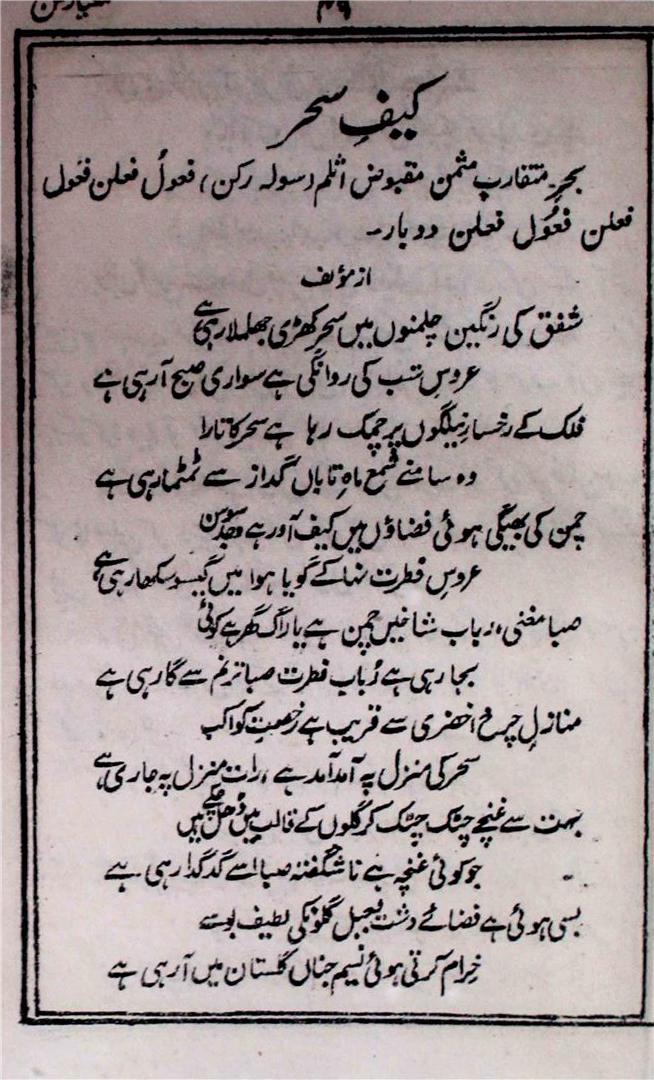 ۴۹
کیفِ سحر
بحر متقارب مثمن مقبوض اثلم (سولہ رکن) فعولُ فعلن فعول
فعلن فعُول فعلن دوبار۔
از مؤلف
شفق کی رنگین چلمنوں میں سحر کھڑی جھلملا رہی ہے
عروسِ شب کی روانگی ہے سواری صبح آ رہی ہے
فلک کے رخسارِ نیلگوں پر چمک رہا ہے سحر کا تارا
وہ سامنے شمع ماہِ تاباں گداز سے ٹمٹما رہی ہے
چمن کی بھیگی ہوئی فضاؤں میں کیف آور ہے
عروسِ فطرت نہا کے گویا ہوا میں گیسو سکھا رہی ہے
صبا مغنی، رباب شاخیں چمن ہے یا راگ گھر ہے کوئی
بجا رہی ہے رُبابِ فطرت صبا ترنم سے گا رہی ہے
منازلِ چرخ اخضری سے قریب ہے رخصتِ کواکب
سحر کی منزل پہ آمد آمد ہے، رات منزل پہ جا رہی ہے
بہت سے غنچے چٹک چٹک کر گلوں کے قالب میں ڈھل چکے ہیں
جو کوئی غنچہ ہے ناشگفتہ صبا اسے گدگدا رہی ہے
بسی ہوئی ہے فضائے دشت و جبل گلونکی لطیف بو سے
خرام کرتی ہوئی نسیم جناں گلستان میں آ رہی ہے